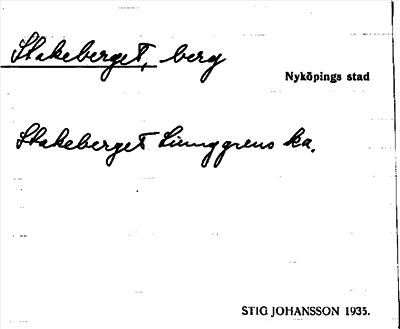 Stakeberget, berg
Nyköpings stad
Stakeberget Liunggrens ka.
STIG JOHANSSON 1935.